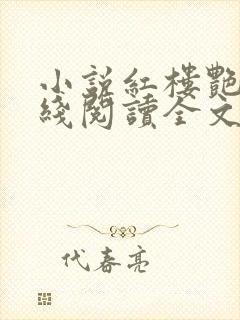 小説紅樓艷
綫閱讀全文
代春亮